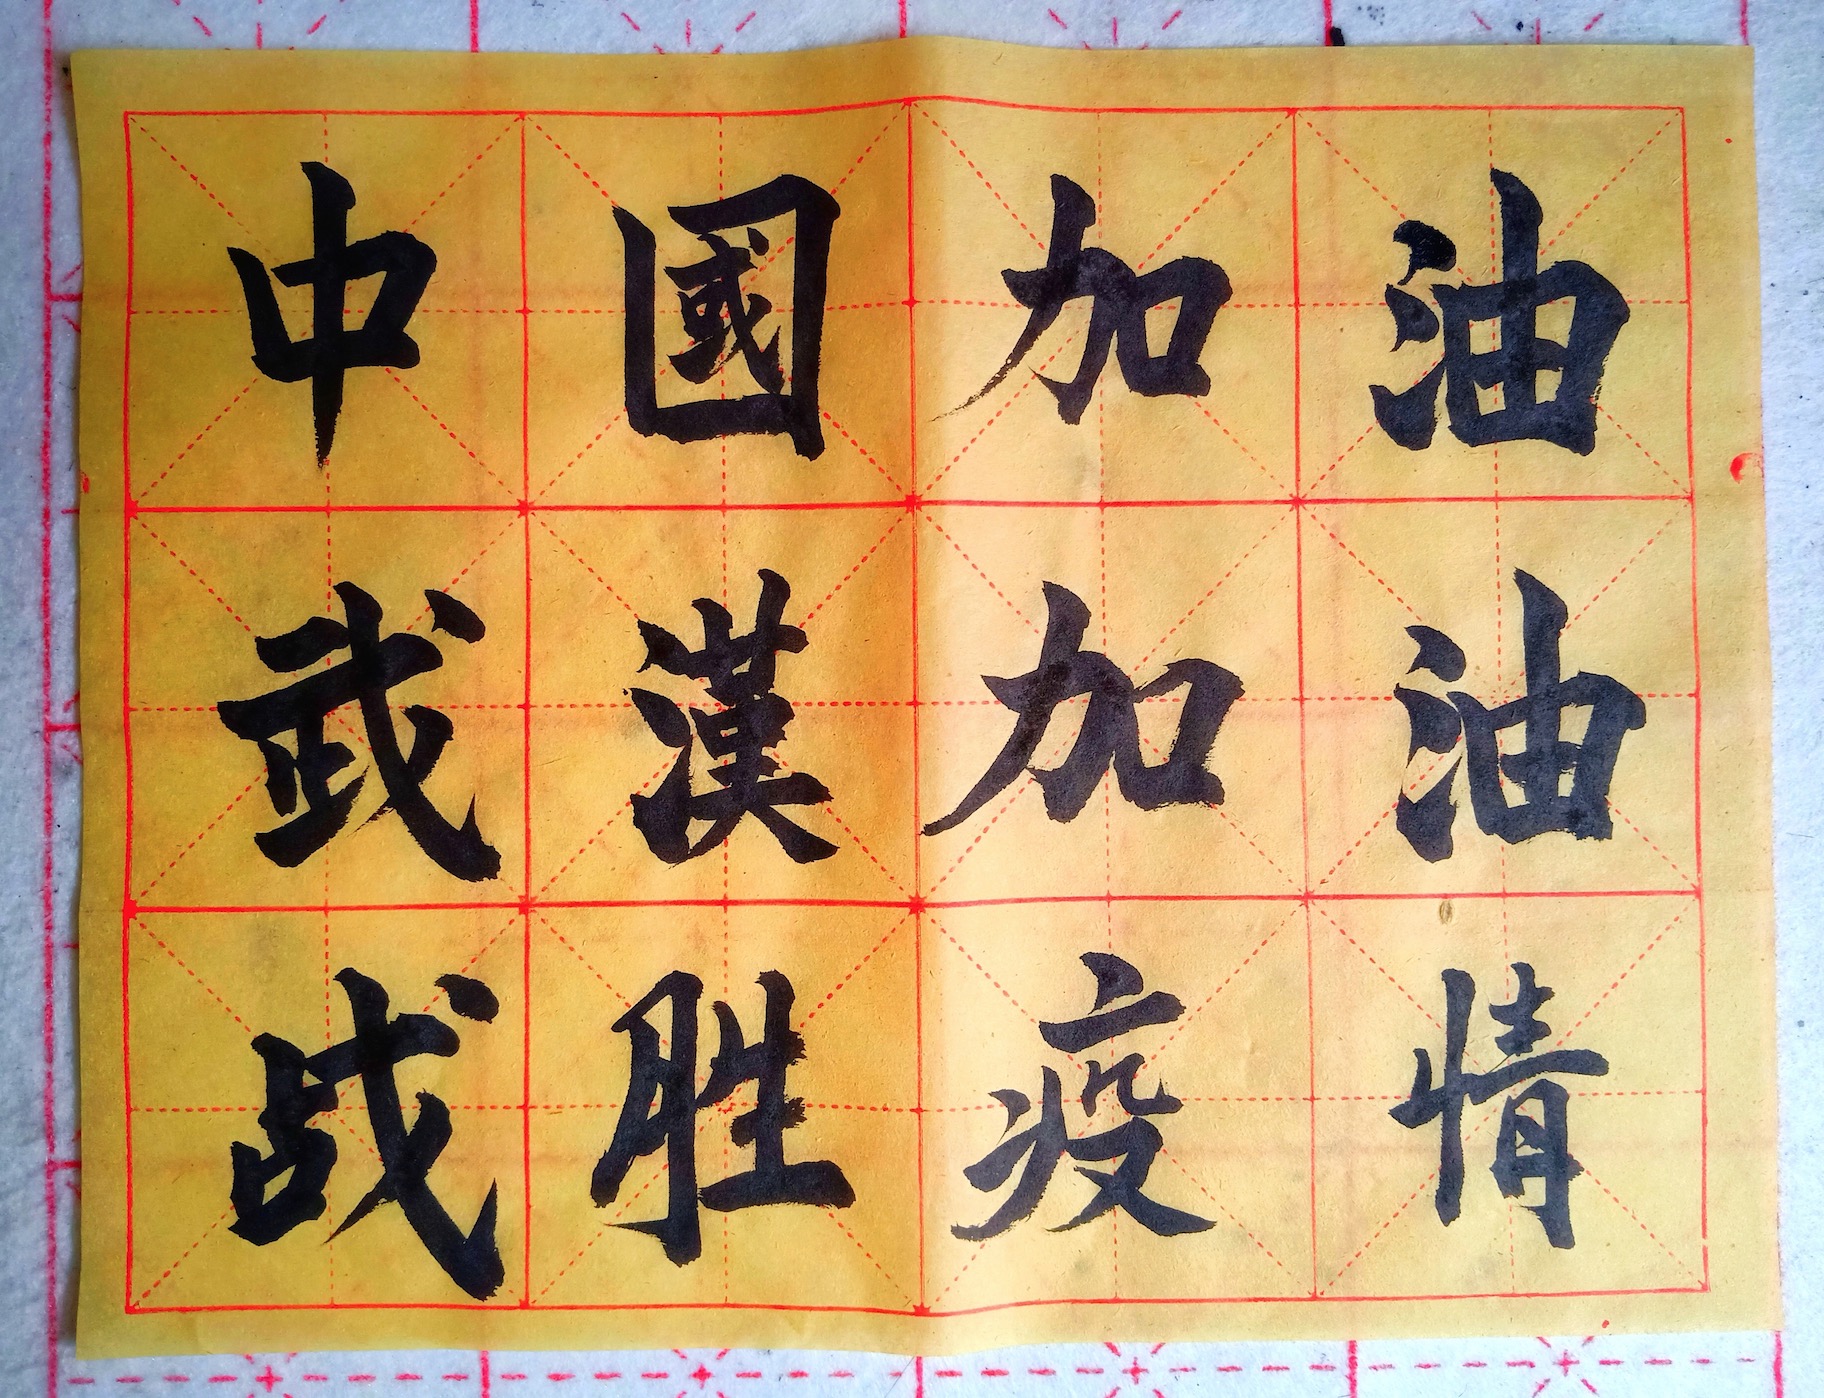 中國加油
武漢加油
战胜疫情